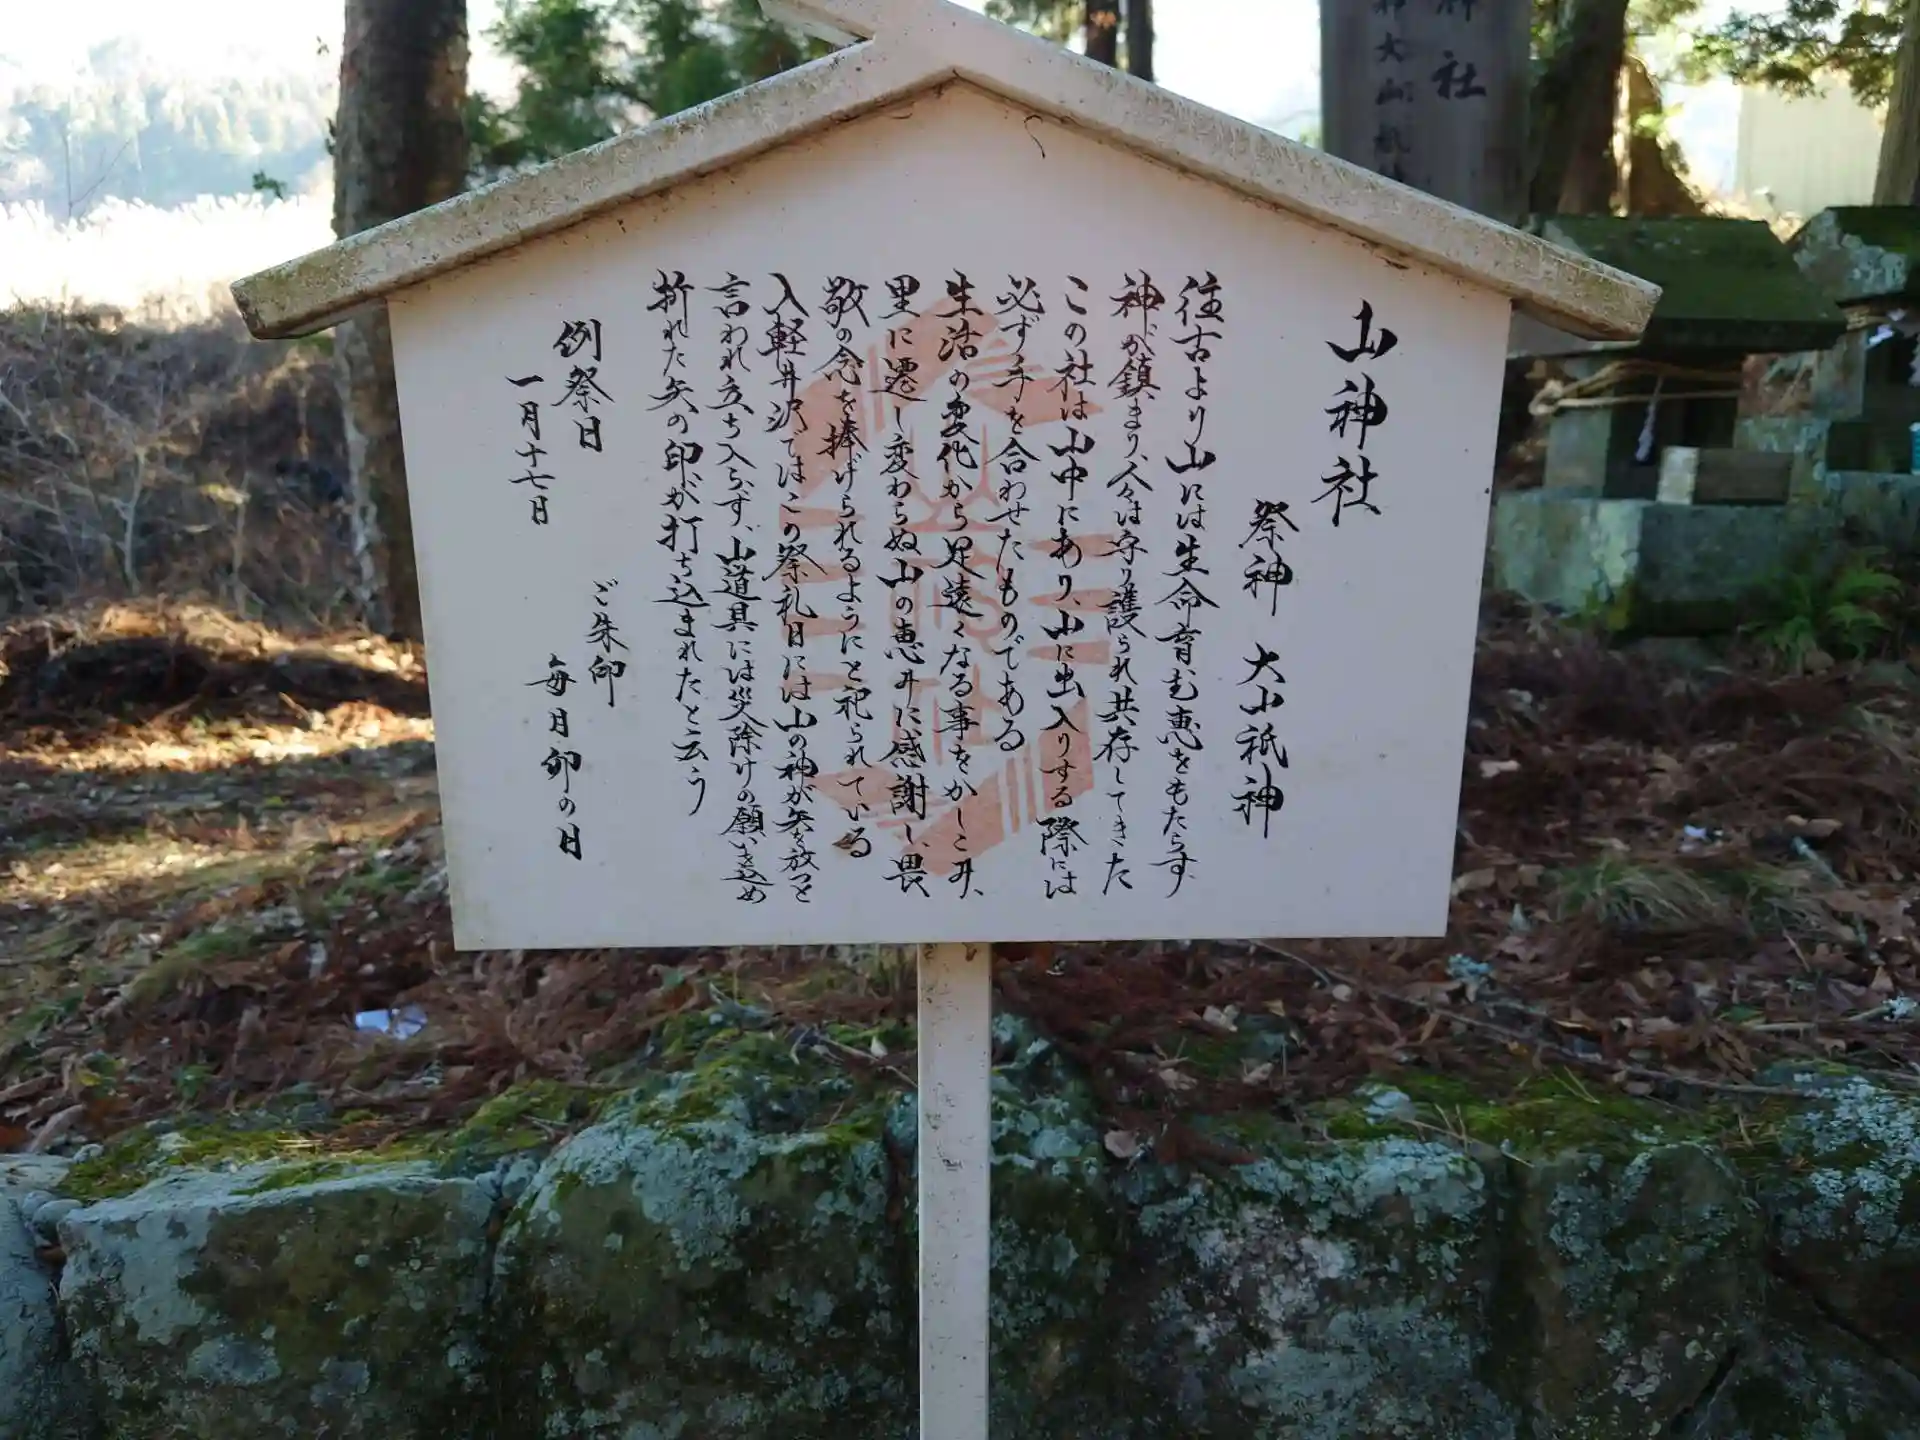 山神社
祭神 大山祇神
往古より山には生命育む恵をもたらす、
神が鎮まり、人々は守り護られ共存してきた
この社は山中にあり、山に出入りする際には
必ず手を合わせたものである
生活の変化から足遠くなる事をかしこみ、
里に遷し変わらぬ山の恵みに感謝し、畏
敬の念を捧げられるようにと祀られている
入軽井沢ではこの祭礼日には山の神が矢を放つと
言われ立ち入らず、山道具には災除けの願いを込め
折れた矢の印が打ち込まれたと云う
例祭日
一月十七日
ご朱印
毎月卯の日
神社
神大山祇